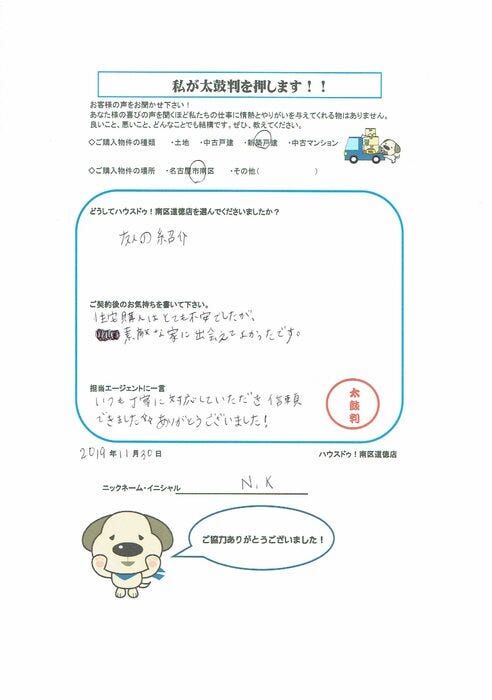 私が太鼓判を押します！！
お客様の声をお聞かせ下さい！
あなた様の喜びの声を聞くほど私たちの仕事に情熱とやりがいを与えてくれる物はありません。
良いこと、悪いこと、どんなことでも結構です。ぜひ、教えてください。
◇ご購入物件の種類　・土地　・中古戸建　・新築戸建　・中古マンション
◇ご購入物件の場所　・名古屋市南区　・その他（　　　　　）
どうしてハウスドゥ！南区道徳店を選んでくださいましたか？
友人の紹介
ご契約後のお気持ちを書いて下さい。
住宅購入はとても不安でしたが、
素敵な家に出会えてよかったです。
担当エージェントに一言
いつも丁寧に対応していただき信頼
できました。ありがとうございました！
太鼓判
2019年11月30日
ハウスドゥ！南区道徳店
ニックネーム・イニシャル　N.K
ご協力ありがとうございました！